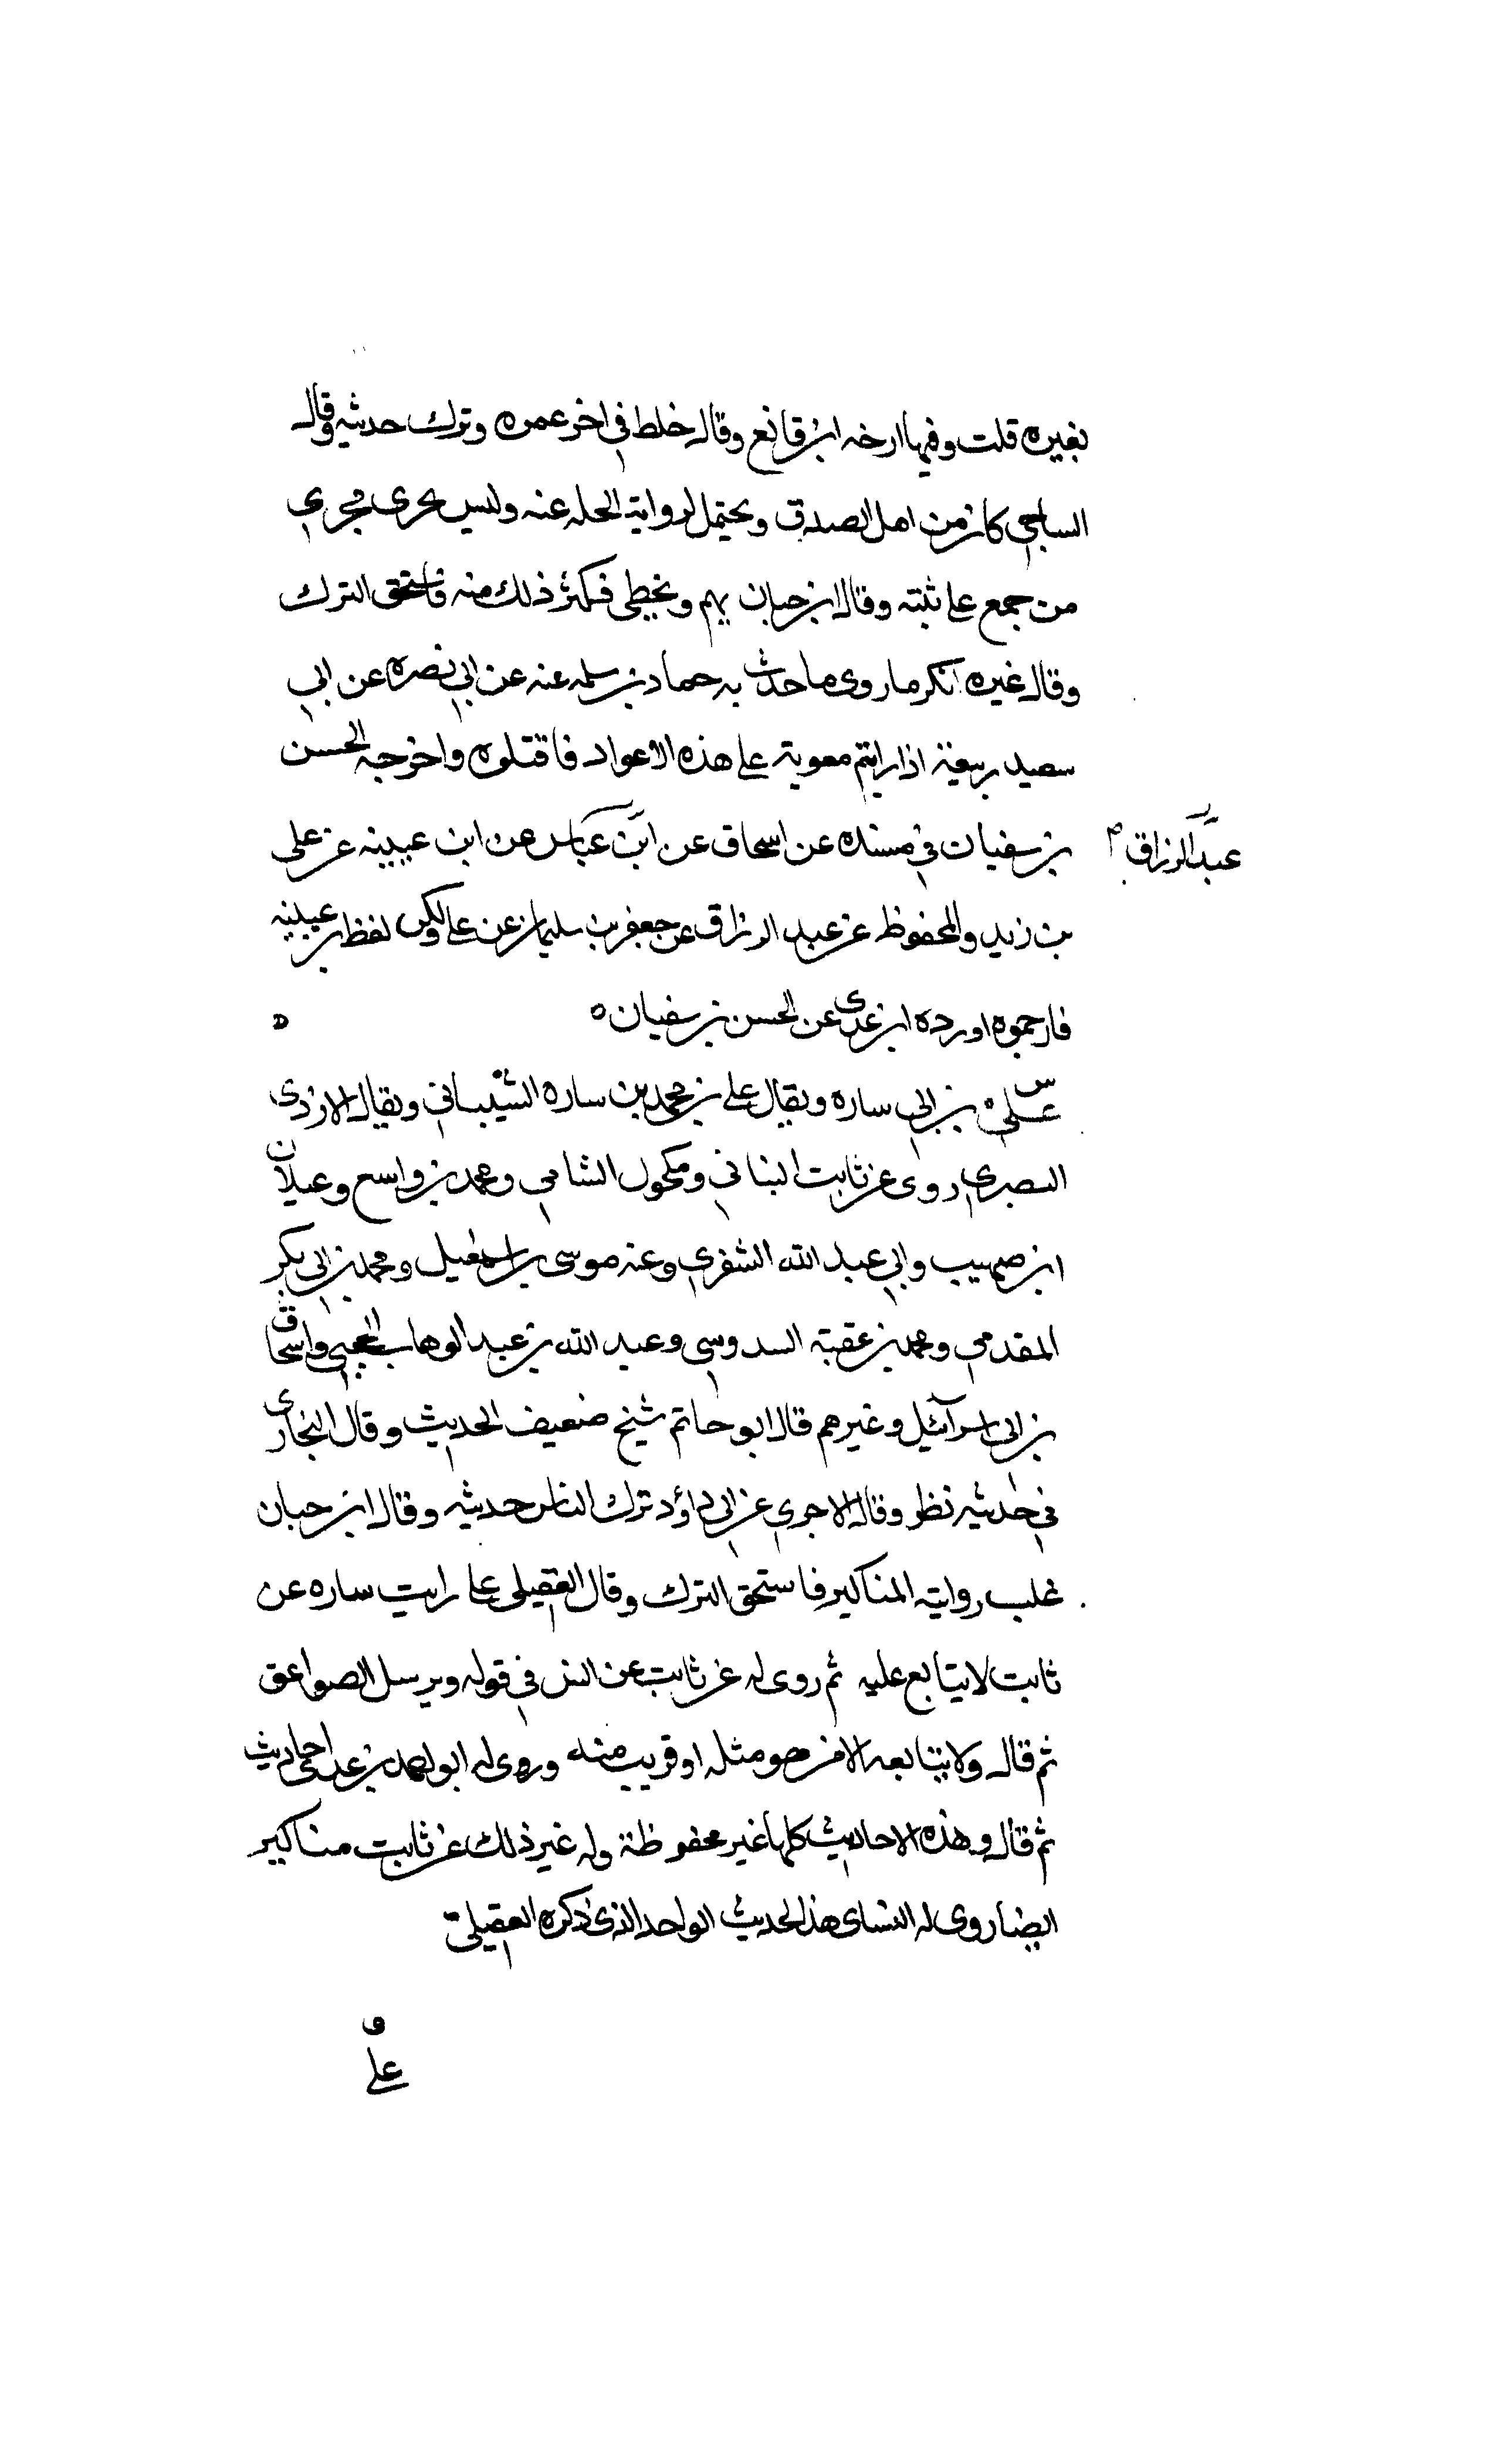 بغيره قلت وفيها ارخه ابن قانع وقال خلط في اخر عمره وترك حديثه وقال
الساجي كان من اهل الصدق ويحتمل لرواية الجله عنه وليس يجري مجري
من جمع على ثبته وقال ابن حبان يهم ويخطي فكثر ذلك منه فاستحق الترك
وقال غيره انكر ما روى ما حدث به حماد بن سلمه عنه عن ابي نضره عن ابي
سعيد رفعه اذا رايتم معوية على هذه الاعواد فاقتلوه واخرجه الحسن
بن سفيان في مسنده عن اسحاق عن ابن عباس عن ابن عيينه عن على
عبد الرزاق
بن زيد والمحفوظ عن عبد الرزاق عن جعفر بن سليمان عن على ولكن لفظ بن عيينه
فارجموه اورده ابن عدى عن الحسن بن سفيان ه
س على بن ابي ساره ويقال على بن محمد بن ساره الشيباني ويقال الازدى
البصري روى عن ثابت البناني ومكحول الشامي ومحمد بن واسع وغيلان
ابن صهيب وابي عبد الله الشقري وعنه موسى بن اسمعيل ومحمد بن ابي بكر
المقدمي ومحمد بن عقبة السدوسي وعبد الله بن عبد الوهاب الحجبي واسحاق
بن ابي اسرآئيل وغيرهم قال ابو حاتم شيخ ضعيف الحديث وقال البخارى
في حديثه نظر وقال الاجري عن ابي داؤد ترك الناس حديثه وقال ابن حبان
غلب روايته المناكير فاستحق الترك وقال العقيلي على رايت ساره عن
ثابت لا يتابع عليه ثم روى له عن ثابت عن انس في قوله ويرسل الصواعق
ثم قال ولا يتابعه الا من هو مثله او قريب منه وروى له ابو احمد بن عدى احاديث
ثم قال وهذه الاحاديث كلها غير محفوظة وله غير ذلك عن ثابت مناكير
ايضا روى له النساى هذا الحديث الواحد الذى ذكره العقيلي
على